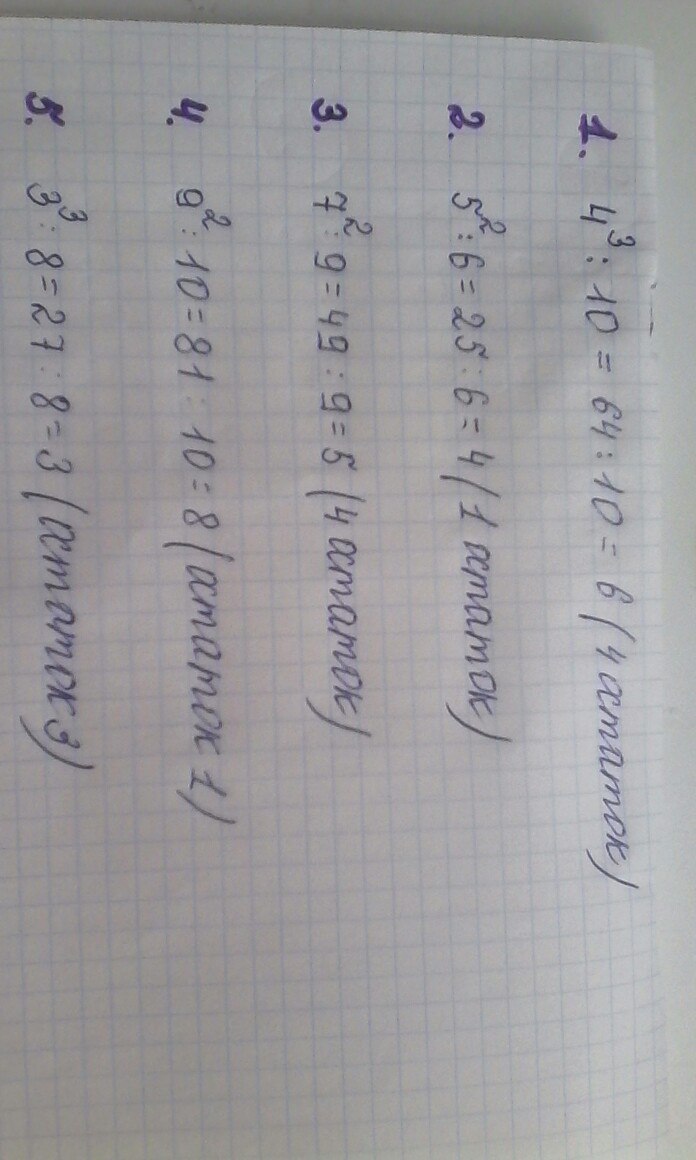 1. 4³ : 10 = 64 : 10 = 6 (4 астаток)
2. 5² : 6 = 25 : 6 = 4 (1 астаток)
3. 7² : 9 = 49 : 9 = 5 (4 астаток)
4. 9² : 10 = 81 : 10 = 8 (астаток 1)
5. 3³ : 8 = 27 : 8 = 3 (астаток 3)